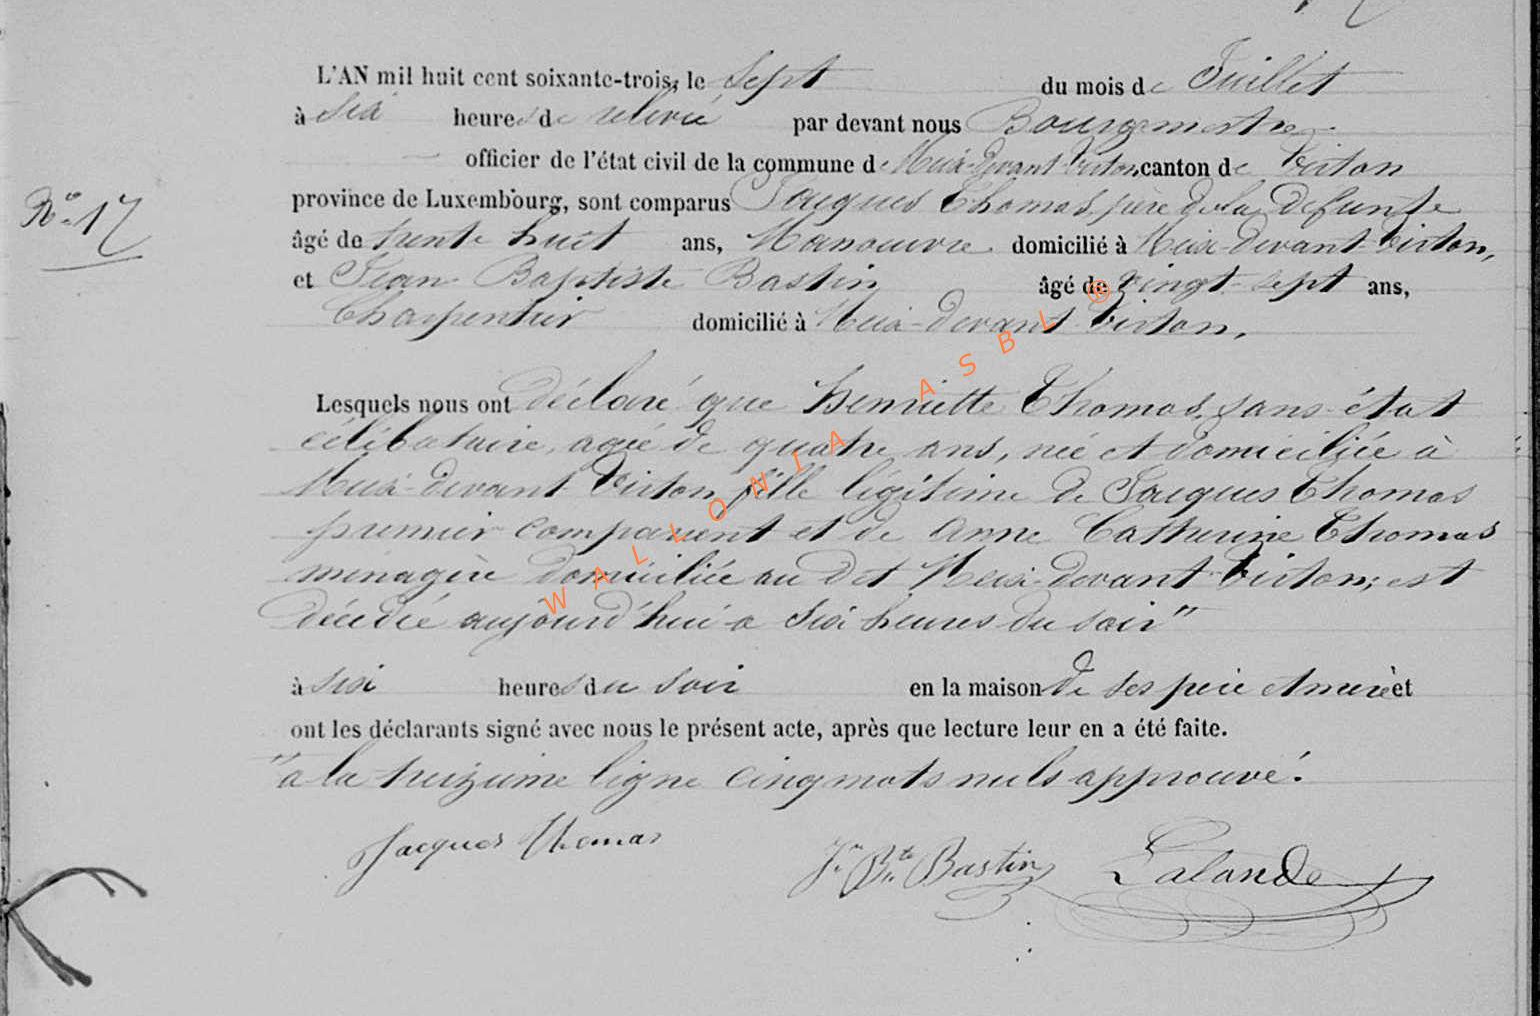 L'AN mil huit cent soixante-trois, le Sept du mois de Juillet
à six heures de relevée par devant nous Bourgmestre
officier de l'état civil de la commune de Meix-devant-Virton, canton de Virton
N° 17
province de Luxembourg, sont comparus Jacques Thomas, père de la défunte
âgé de trente huit ans, Manoeuvre domicilié à Meix-devant-Virton,
et Jean Baptiste Bastin âgé de vingt-sept ans,
Charpentier domicilié à Meix-devant Virton,
Lesquels nous ont déclaré que Henriette Thomas, sans état
célibataire, agée de quatre ans, née et domiciliée à
Meix-devant-Virton, fille légitime de Jacques Thomas
premier comparent et de Anne Catherine Thomas
ménagère domiciliée au dit Meix-devant-Virton; est
décédée aujourd'hui à six heures du soir"
à six heures du soir en la maison de ses père et mère et
ont les déclarants signé avec nous le présent acte, après que lecture leur en a été faite.
"à la treizième ligne cinq mots nuls approuvé.
Jacques Thomas
Jn Bte Bastin Lalande
WALLONIA ASBL ®